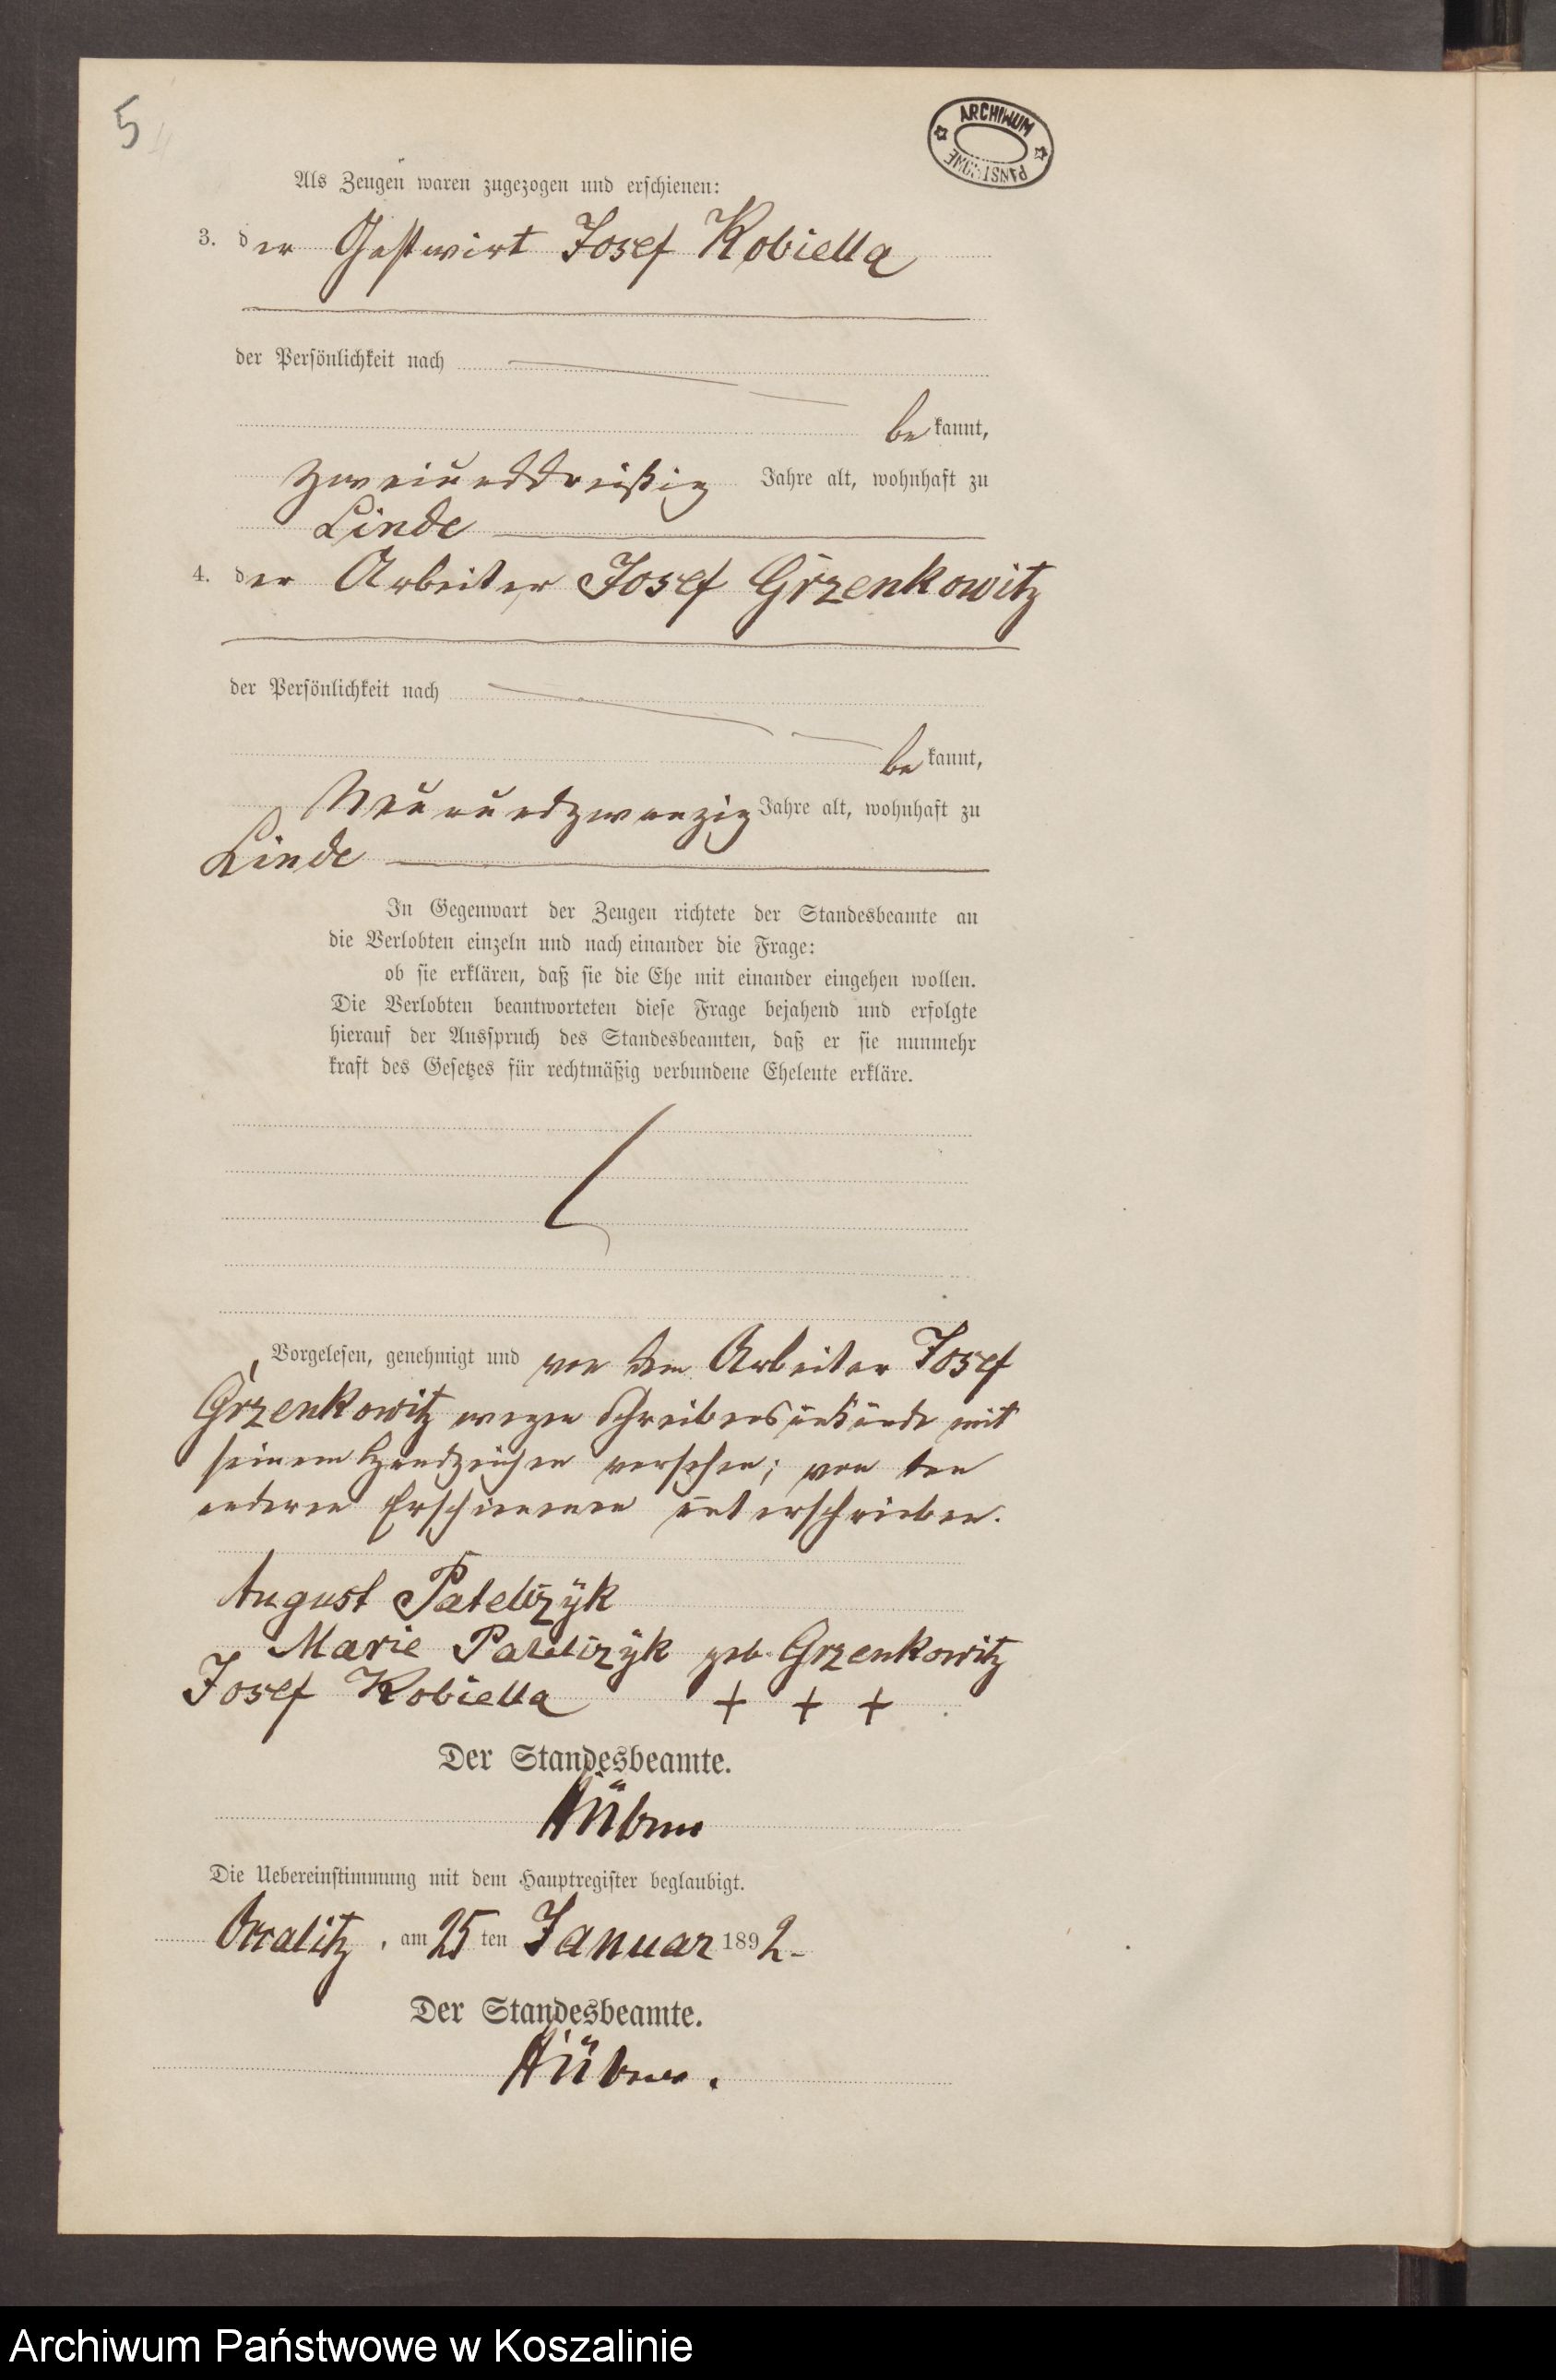 5
ARCHIWUM PAŃSTWOWE
Als Zeugen waren zugezogen und erschienen:
3. der Gastwirt Josef Kobiella
der Persönlichkeit nach
bekannt,
zweiunddreißig Jahre alt, wohnhaft zu
Linde
4. der Arbeiter Josef Grzenkowitz
der Persönlichkeit nach
bekannt,
Neunundzwanzig Jahre alt, wohnhaft zu
Linde
In Gegenwart der Zeugen richtete der Standesbeamte an
die Verlobten einzeln und nach einander die Frage:
ob sie erklären, daß sie die Ehe mit einander eingehen wollen.
Die Verlobten beantworteten diese Frage bejahend und erfolgte
hierauf der Ausspruch des Standesbeamten, daß er sie nunmehr
kraft des Gesetzes für rechtmäßig verbundene Eheleute erkläre.
Vorgelesen, genehmigt und von dem Arbeiter Josef
Grzenkowitz wegen Schreibensunkunde mit
seinem Handzeichen versehen; von den
anderen Erschienenen unterschrieben.
August
Marie geb. Grzenkowitz
Josef Kobiella + + +
Der Standesbeamte.
Hübner
Die Uebereinstimmung mit dem Hauptregister beglaubigt.
am 25ten Januar 1892
Der Standesbeamte.
Hübner.
Archiwum Państwowe w Koszalinie